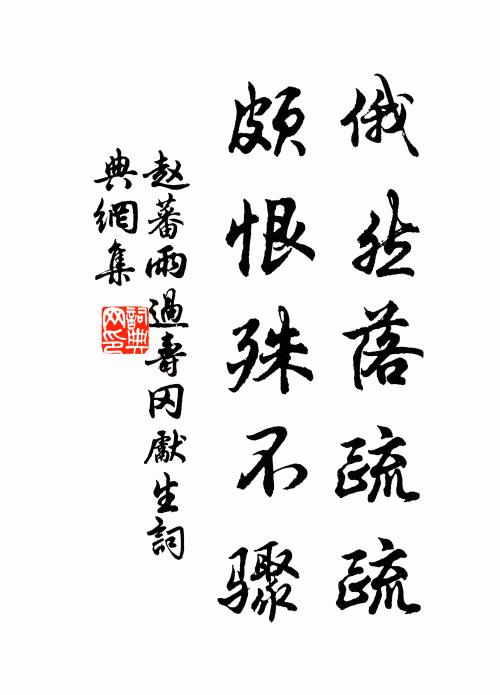 俄然落疏疏
颇恨殊不骤
赵蕃雨過壽冈獻生詞
典網集
詞典
网印